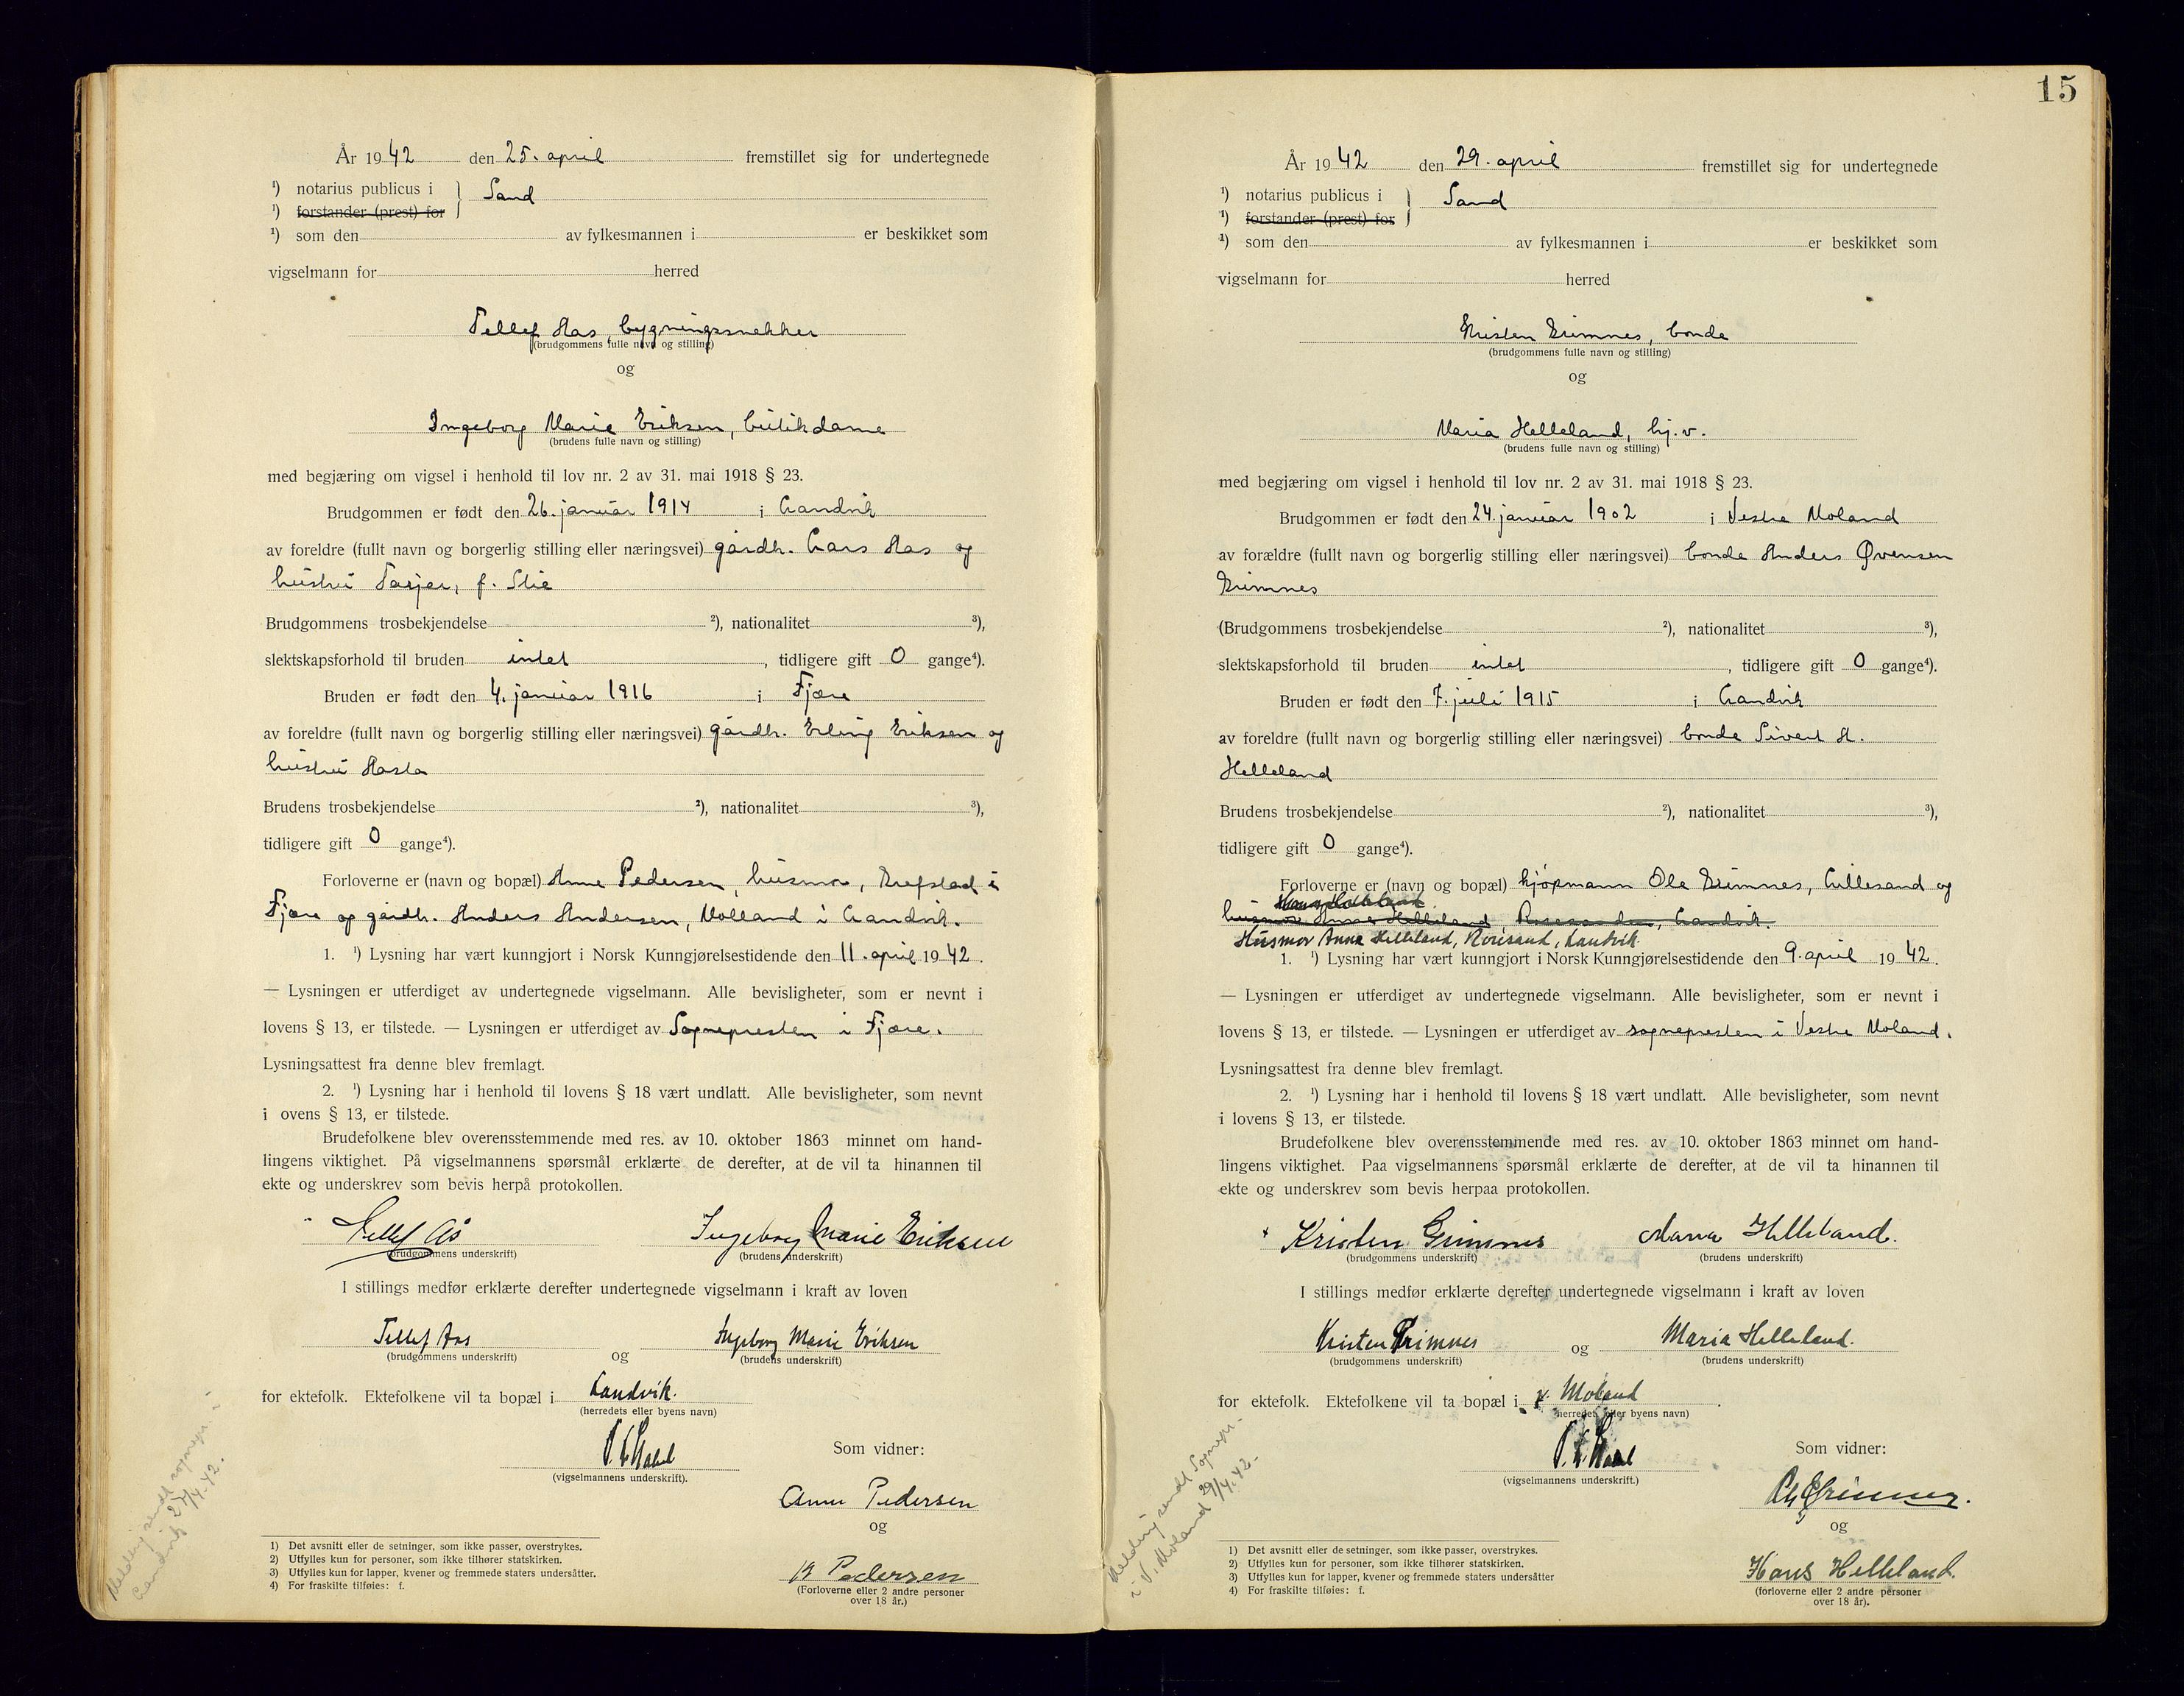 År 1942 den 25. april fremstillet sig for undertegnede
¹) notarius publicus i } Sand
¹) forstander (prest) for
¹) som den av fylkesmannen i er beskikket som
vigselmann for herred
Tellef Aas, bygningssnekker
(brudgommens fulle navn og stilling)
og
Ingeborg Marie Eriksen, butikdame
(brudens fulle navn og stilling)
med begjæring om vigsel i henhold til lov nr. 2 av 31. mai 1918 § 23.
Brudgommen er født den 26. januar 1914 i Landvik
av foreldre (fullt navn og borgerlig stilling eller næringsvei) gårdbr. Lars Aas og
hustru Tarjer, f. Stie
Brudgommens trosbekjendelse ²), nationalitet ³),
slektskapsforhold til bruden intet, tidligere gift 0 gange⁴).
Bruden er født den 4. januar 1916 i Fjære
av foreldre (fullt navn og borgerlig stilling eller næringsvei) gårdbr. Erling Eriksen og
hustru Aasta
Brudens trosbekjendelse ²), nationalitet ³),
tidligere gift 0 gange⁴).
Forloverne er (navn og bopæl) Anne Pedersen, husmor, Grefstad i
Fjære og gårdbr. Anders Andersen, Molland i Landvik.
1. ¹) Lysning har vært kunngjort i Norsk Kunngjørelsestidende den 11. april 1942.
— Lysningen er utferdiget av undertegnede vigselmann. Alle bevisligheter, som er nevnt i
lovens § 13, er tilstede. — Lysningen er utferdiget av Sognepresten i Fjære.
Lysningsattest fra denne blev fremlagt.
2. ¹) Lysning har i henhold til lovens § 18 vært undlatt. Alle bevisligheter, som nevnt
i ovens § 13, er tilstede.
Brudefolkene blev overensstemmende med res. av 10. oktober 1863 minnet om hand-
lingens viktighet. På vigselmannens spørsmål erklærte de derefter, at de vil ta hinannen til
ekte og underskrev som bevis herpå protokollen.
Tellef Ås Ingeborg Marie Eriksen
(brudgommens underskrift) (brudens underskrift)
I stillings medfør erklærte derefter undertegnede vigselmann i kraft av loven
Tellef Aas og Ingeborg Marie Eriksen
(brudgommens underskrift) (brudens underskrift)
for ektefolk. Ektefolkene vil ta bopæl i Landvik.
(herredets eller byens navn)
(vigselmannens underskrift).
Som vidner:
Anne Pedersen
og
Pedersen
(Forloverne eller 2 andre personer
over 18 år.)
1) Det avsnitt eller de setninger, som ikke passer, overstrykes.
2) Utfylles kun for personer, som ikke tilhører statskirken.
3) Utfylles kun for lapper, kvener og fremmede staters undersåtter.
4) For fraskilte tilføies: f.
Melding sendt sognepr. i
Landvik 27/4-42.
15
År 1942 den 29. april fremstillet sig for undertegnede
¹) notarius publicus i } Sand
¹) forstander (prest) for
¹) som den av fylkesmannen i er beskikket som
vigselmann for herred
Kristen Grimnes, bonde
(brudgommens fulle navn og stilling)
og
Maria Helleland, hj. v.
(brudens fulle navn og stilling)
med begjæring om vigsel i henhold til lov nr. 2 av 31. mai 1918 § 23.
Brudgommen er født den 24. januar 1902 i Vestre Moland
av forældre (fullt navn og borgerlig stilling eller næringsvei) bonde Anders Øvensen
Grimnes
(Brudgommens trosbekjendelse ²), nationalitet ³),
slektskapsforhold til bruden intet, tidligere gift 0 gange⁴).
Bruden er født den 7. juli 1915 i Landvik
av foreldre (fullt navn og borgerlig stilling eller næringsvei) bonde Sivert A.
Helleland
Brudens trosbekjendelse ²), nationalitet ³),
tidligere gift 0 gange⁴).
Forloverne er (navn og bopæl) kjøpmann Ole Grimnes, Lillesand og
Hans Helleland
husmor Anna Helleland Roresanden, Landvik.
Husmor Anna Helleland, Roresand, Landvik.
1. ¹) Lysning har vært kunngjort i Norsk Kunngjørelsestidende den 9. april 1942.
— Lysningen er utferdiget av undertegnede vigselmann. Alle bevisligheter, som er nevnt i
lovens § 13, er tilstede. — Lysningen er utferdiget av sognepresten i Vestre Moland.
Lysningsattest fra denne blev fremlagt.
2. ¹) Lysning har i henhold til lovens § 18 vært undlatt. Alle bevisligheter, som nevnt
i lovens § 13, er tilstede.
Brudefolkene blev overensstemmende med res. av 10. oktober 1863 minnet om hand-
lingens viktighet. Paa vigselmannens spørsmål erklærte de derefter, at de vil ta hinannen til
ekte og underskrev som bevis herpaa protokollen.
Kristen Grimnes Maria Helleland.
(brudgommens underskrift) (brudens underskrift)
I stillings medfør erklærte derefter undertegnede vigselmann i kraft av loven
Kristen Grimnes og Maria Helleland.
(brudgommens underskrift) (brudens underskrift)
for ektefolk. Ektefolkene vil ta bopæl i V. Moland.
(herredets eller byens navn)
(vigselmannens underskrift.)
Som vidner:
Grimnes.
og
Hans Helleland.
(forloverne eller 2 andre personer
over 18 år).
1) Det avsnitt eller de setninger, som ikke passer, overstrykes.
2) Utfylles kun for personer, som ikke tilhører statskirken.
3) Utfylles kun for lapper, kvener og fremmede staters undersåtter
4) For fraskilte tilføies: f.
Melding sendt Sognepr.
i V. Moland 29/4.42.